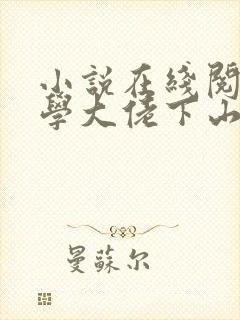 小說在綫閱
學大佬下山
曼蘇尔